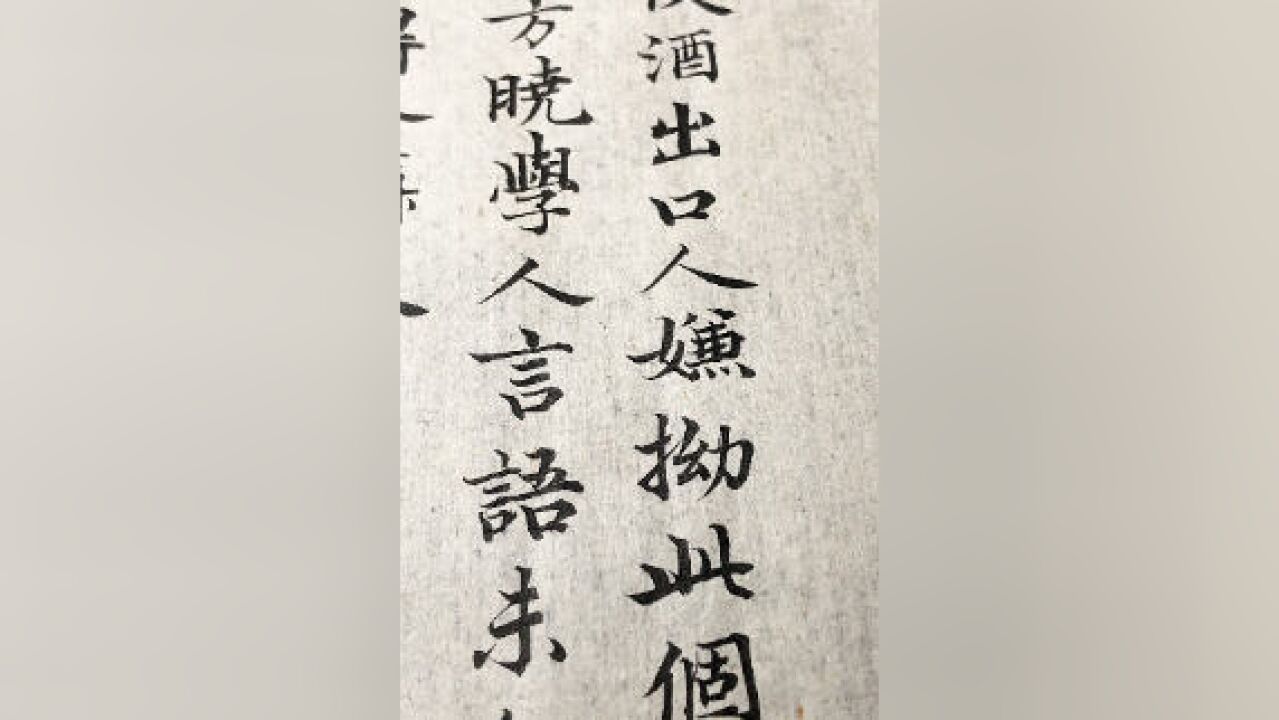 酒出口人嫌拗此個
方曉學人言語未